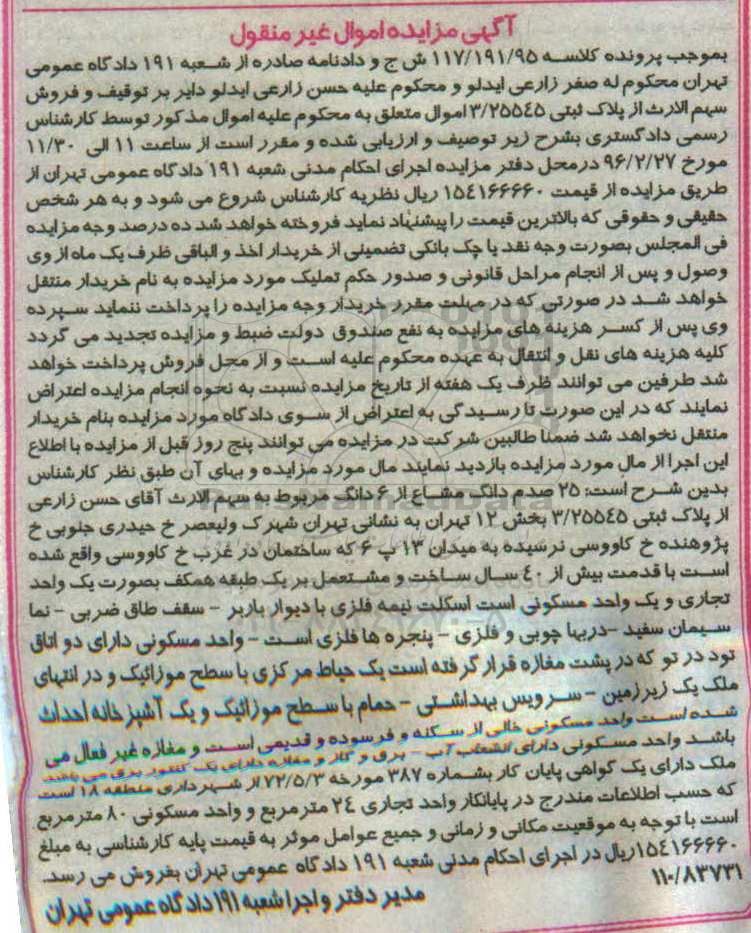 آگهی مزایده اموال غیر منقول
بموجب پرونده کلاسه ۱۱۷/۱۹۱/۹۵ ش ج و دادنامه صادره از شعبه ۱۹۱ دادگاه عمومی
تهران محکوم له صفر زارعی ایدلو و محکوم علیه حسن زارعی ایدلو دایر بر توقیف و فروش
سهم الارث از پلاک ثبتی ۳/۲۵۵٤۵ اموال متعلق به محکوم علیه اموال مذکور توسط کارشناس
رسمی دادگستری بشرح زیر توصیف و ارزیابی شده و مقرر است از ساعت ۱۱ الی ۱۱/۳۰
مورخ ۹۶/۲/۲۷ درمحل دفتر مزایده اجرای احکام مدنی شعبه ۱۹۱ دادگاه عمومی تهران از
طریق مزایده از قیمت ۱۵٤۱۶۶۶۶۰ ریال نظریه کارشناس شروع می شود و به هر شخص
حقیقی و حقوقی که بالاترین قیمت را پیشنهاد نماید فروخته خواهد شد ده درصد وجه مزایده
فی المجلس بصورت وجه نقد یا چک بانکی تضمینی از خریدار اخذ و الباقی ظرف یک ماه از وی
وصول و پس از انجام مراحل قانونی و صدور حکم تملیک مورد مزایده به نام خریدار منتقل
خواهد شد در صورتی که در مهلت مقرر خریدار وجه مزایده را پرداخت ننماید سپرده
وی پس از کسر هزینه های مزایده به نفع صندوق دولت ضبط و مزایده تجدید می گردد
کلیه هزینه های نقل و انتقال به عهده محکوم علیه است و از محل فروش پرداخت خواهد
شد طرفین می توانند ظرف یک هفته از تاریخ مزایده نسبت به نحوه انجام مزایده اعتراض
نمایند که در این صورت تا رسیدگی به اعتراض از سوی دادگاه مورد مزایده بنام خریدار
منتقل نخواهد شد ضمنا طالبین شرکت در مزایده می توانند پنج روز قبل از مزایده با اطلاع
این اجرا از مال مورد مزایده بازدید نمایند مال مورد مزایده و بهای آن طبق نظر کارشناس
بدین شرح است: ۲۵ صدم دانگ مشاع از ۶ دانگ مربوط به سهم الارث آقای حسن زارعی
از پلاک ثبتی ۳/۲۵۵٤۵ بخش ۱۲ تهران به نشانی تهران شهرک ولیعصر خ حیدری جنوبی خ
پژوهنده خ کاووسی نرسیده به میدان ۱۳ پ ۶ که ساختمان در غرب خ کاووسی واقع شده
است با قدمت بیش از ٤۰ سال ساخت و مشتمل بر یک طبقه همکف بصورت یک واحد
تجاری و یک واحد مسکونی است اسکلت نیمه فلزی با دیوار باربر - سقف طاق ضربی - نما
سیمان سفید -دربها چوبی و فلزی - پنجره ها فلزی است - واحد مسکونی دارای دو اتاق
تود در تو که در پشت مغازه قرار گرفته است یک حیاط مرکزی با سطح موزائیک و در انتهای
ملک یک زیرزمین - سرویس بهداشتی - حمام با سطح موزائیک و یک آشپزخانه احداث
شده است واحد مسکونی خالی از سکنه و فرسوده و قدیمی است و مغازه غیر فعال می
باشد واحد مسکونی دارای انشعاب آب - برق و گاز و مغازه دارای یک کنتور برق می باشد
ملک دارای یک گواهی پایان کار بشماره ۳۸۷ مورخه ۷۲/۵/۳ از شهرداری منطقه ۱۸ است
که حسب اطلاعات مندرج در پایانکار واحد تجاری ۲٤ مترمربع و واحد مسکونی ۸۰ مترمربع
است با توجه به موقعیت مکانی و زمانی و جمیع عوامل موثر به قیمت پایه کارشناسی به مبلغ
۱۵٤۱۶۶۶۶۰ریال در اجرای احکام مدنی شعبه ۱۹۱ دادگاه عمومی تهران بفروش می رسد.
۱۱۰/۸۳۷۳۱
مدیر دفتر و اجرا شعبه ۱۹۱ دادگاه عمومی تهران